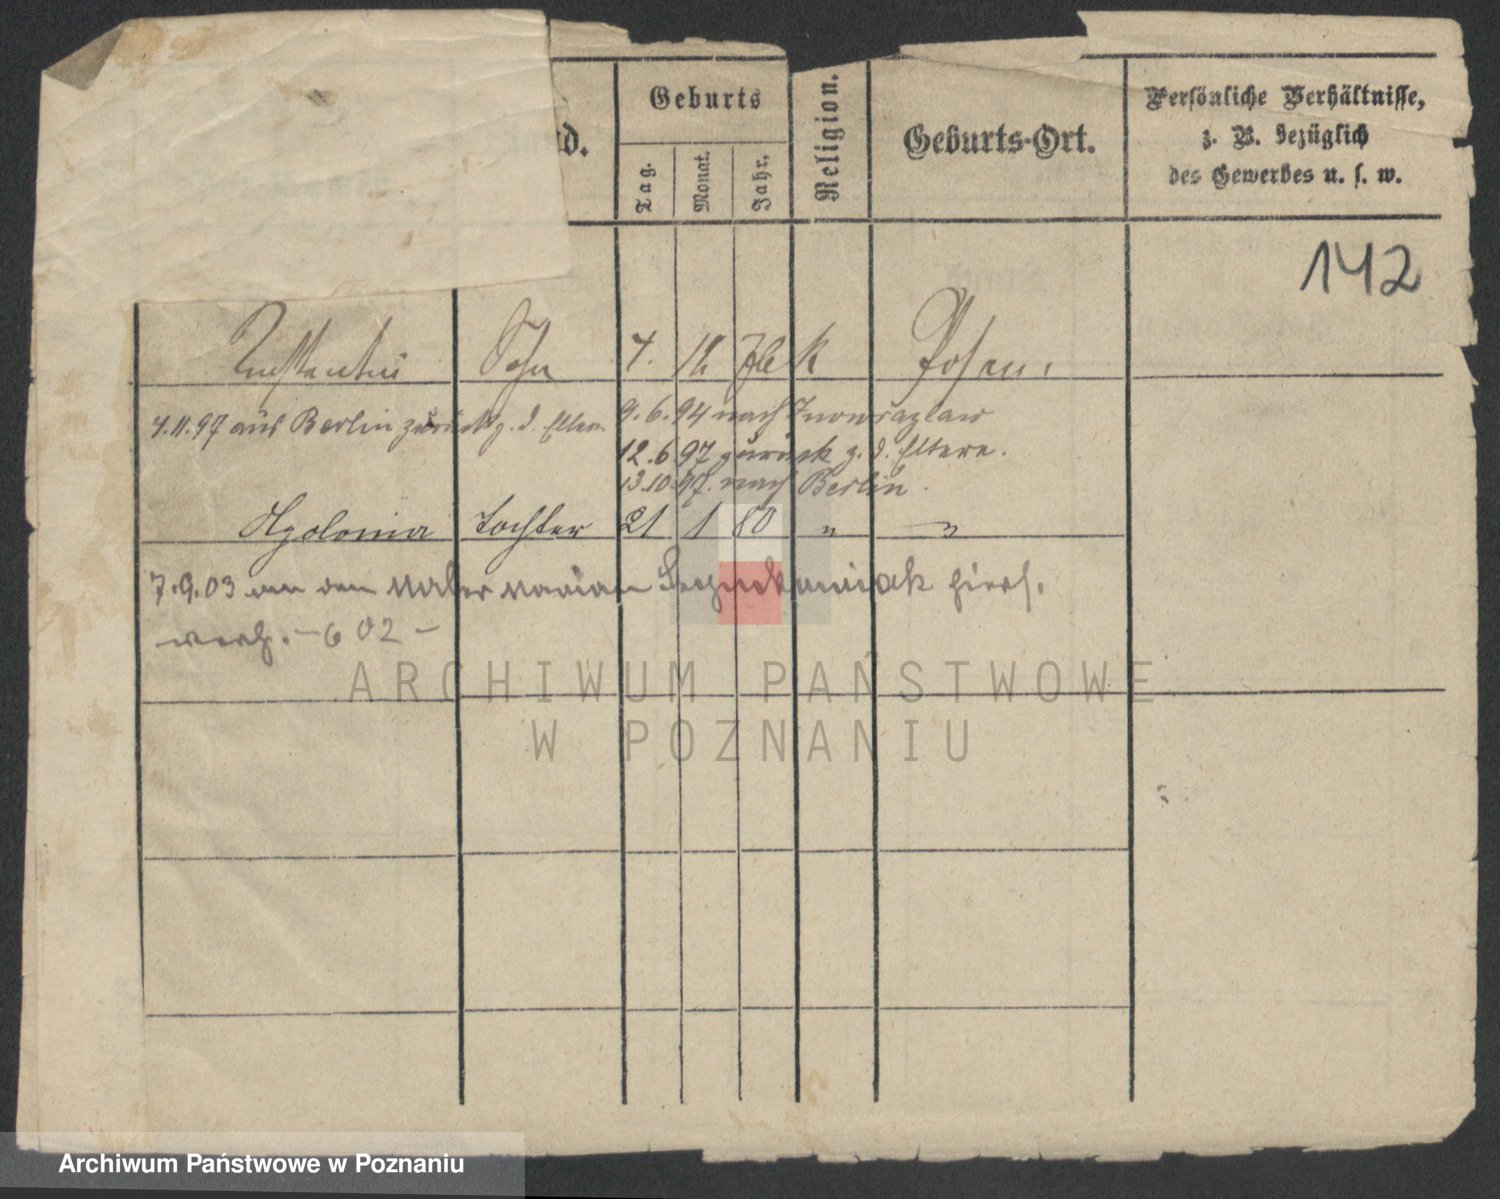 Geburts
Tag.
Monat.
Jahr.
Religion.
Geburts-Ort.
Persönliche Verhältnisse,
z. B. bezüglich
des Gewerbes u. s. w.
142
Sohn 7. 12 k Posen.
7.11.97 aus Berlin zurück z. d. Eltern
9.6.94 nach Inowrazlaw
12.6.97 zurück z. d. Eltern.
13.10.97. nach Berlin.
Apolonia Tochter 21 1 80 " "
7.9.03 an den Maler hiers.
verh. - 602 -
ARCHIWUM PAŃSTWOWE
W POZNANIU
Archiwum Państwowe w Poznaniu